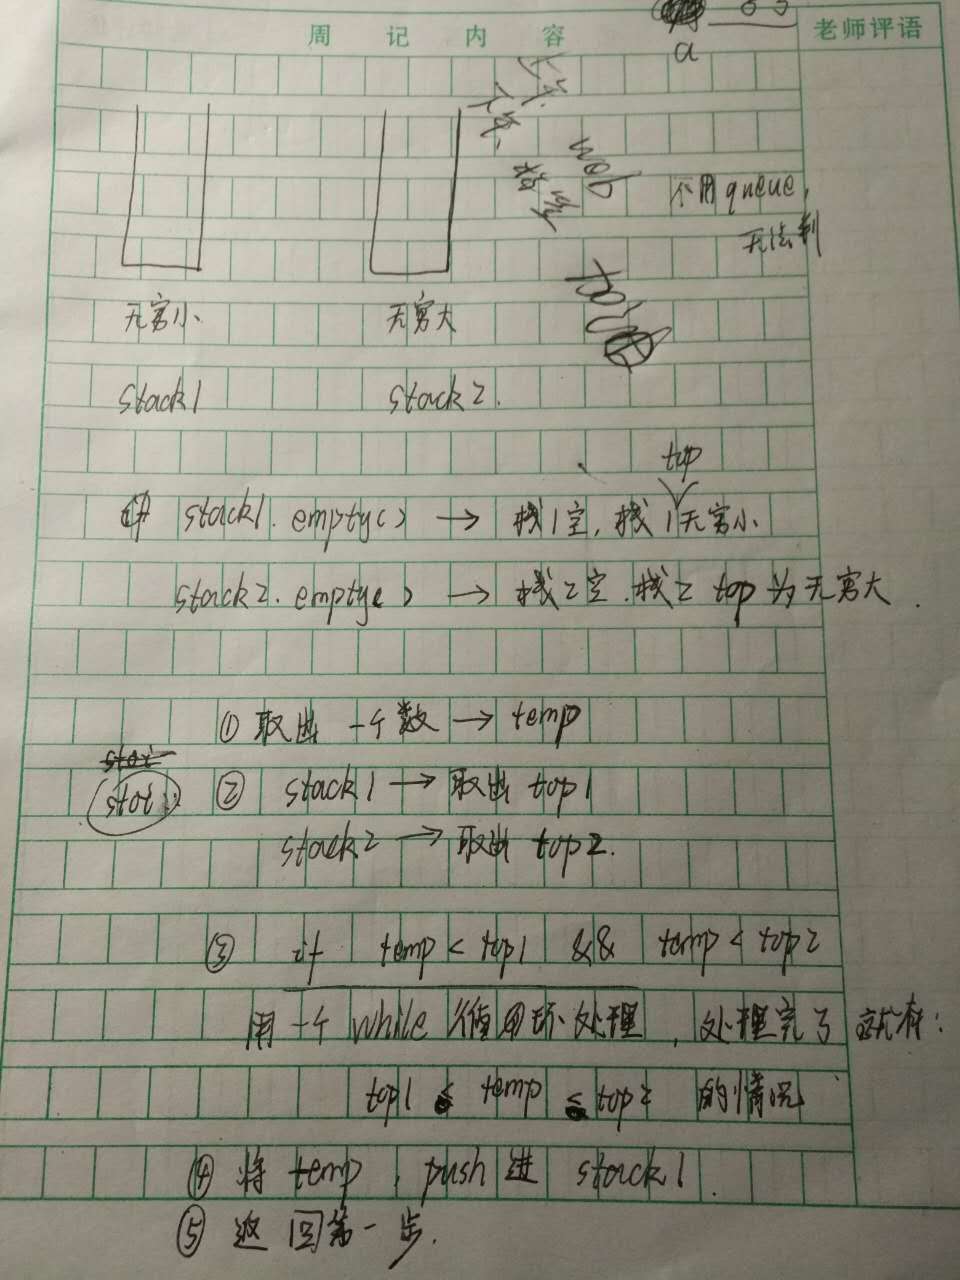 周记内容
老师评语
a
不用queue,
无法判
无穷小
无穷大
stack1
stack2.
top
stack1.empty() → 栈1空,栈1无穷小
stack2.empty() → 栈2空.栈2 top 为无穷大.
① 取出一个数 → temp
② stack1 → 取出 top1
stack2 → 取出 top2.
③ if temp < top1 && temp < top2
用一个 while 循环处理,处理完了就有:
top1 ≤ temp ≤ top2 的情况
④ 将 temp push 进 stack1.
⑤ 返回第一步.